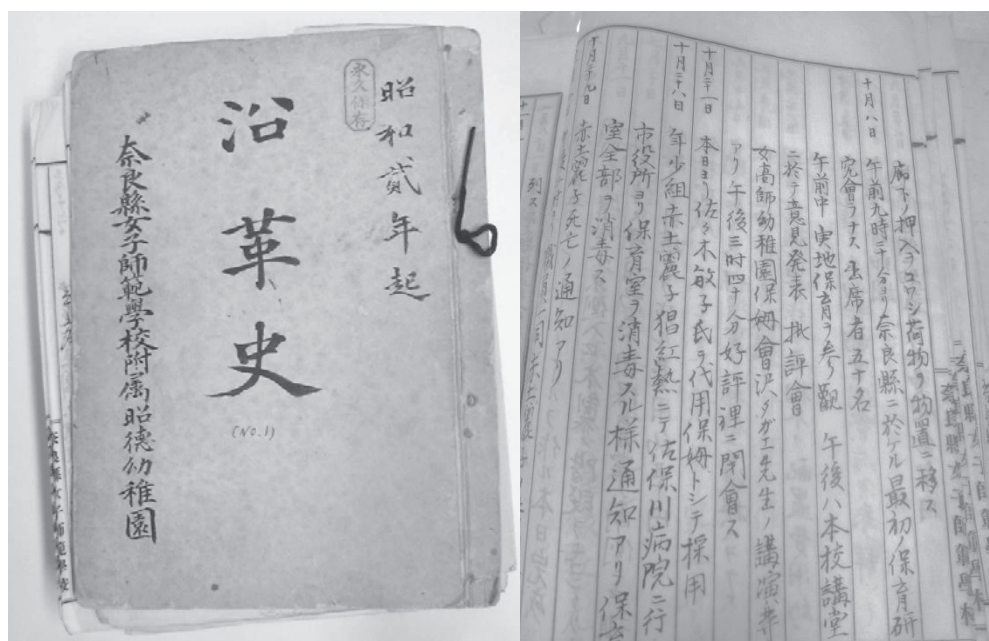 昭和貳年起
永久保存
沿革史
(NO.1)
奈良縣女子師範學校附属昭德幼稚園
廊下ノ押入ヲコワシ荷物ヲ物置ニ移ス
十月八日 午前九時三十分ヨリ奈良縣ニ於ケル最初ノ保育研
究會ヲナス 出席者五十名
午前中実地保育ヲ参觀 午後ハ本校講堂
ニ於テ意見発表 批評會
女高師幼稚園保姆會沢タガエ先生ノ講演等
アリ午後三時四十分好評裡ニ閉會ス
十月二十一日 本日ヨリ佐々木敏子氏ヲ代用保姆トシテ採用
十月二十八日 年少組赤土露子猩紅熱ニテ佐保川病院ニ行
市役所ヨリ保育室ヲ消毒スル様通知アリ保育
室全部ヲ消毒ス
十月二十九日 赤土露子死亡ノ通知アリ